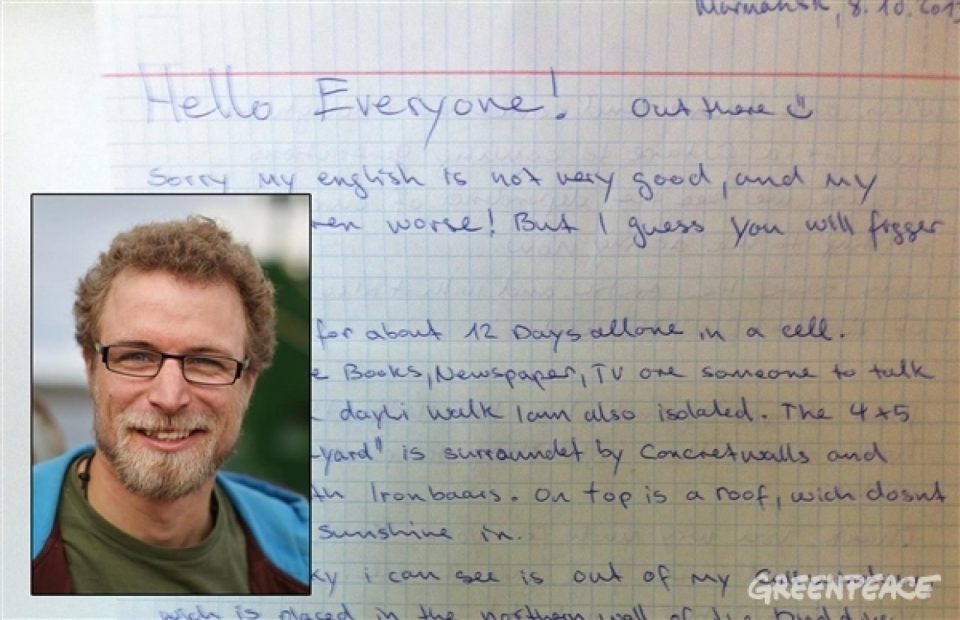 Murmansk, 8.10.2013
Hello Everyone! Out there
Sorry my english is not very good, and my
worse! But I guess you will figger
for about 12 Days allone in a cell.
Books, Newspaper, TV ore someone to talk
dayli walk I am also isolated. The 4*5
yard" is surroundet by Concretwalls and
Ironbaars. On top is a roof, wich dosnt
sunshine in.
i can see is out of my
wich is placed in the northern wall of the
GREENPEACE